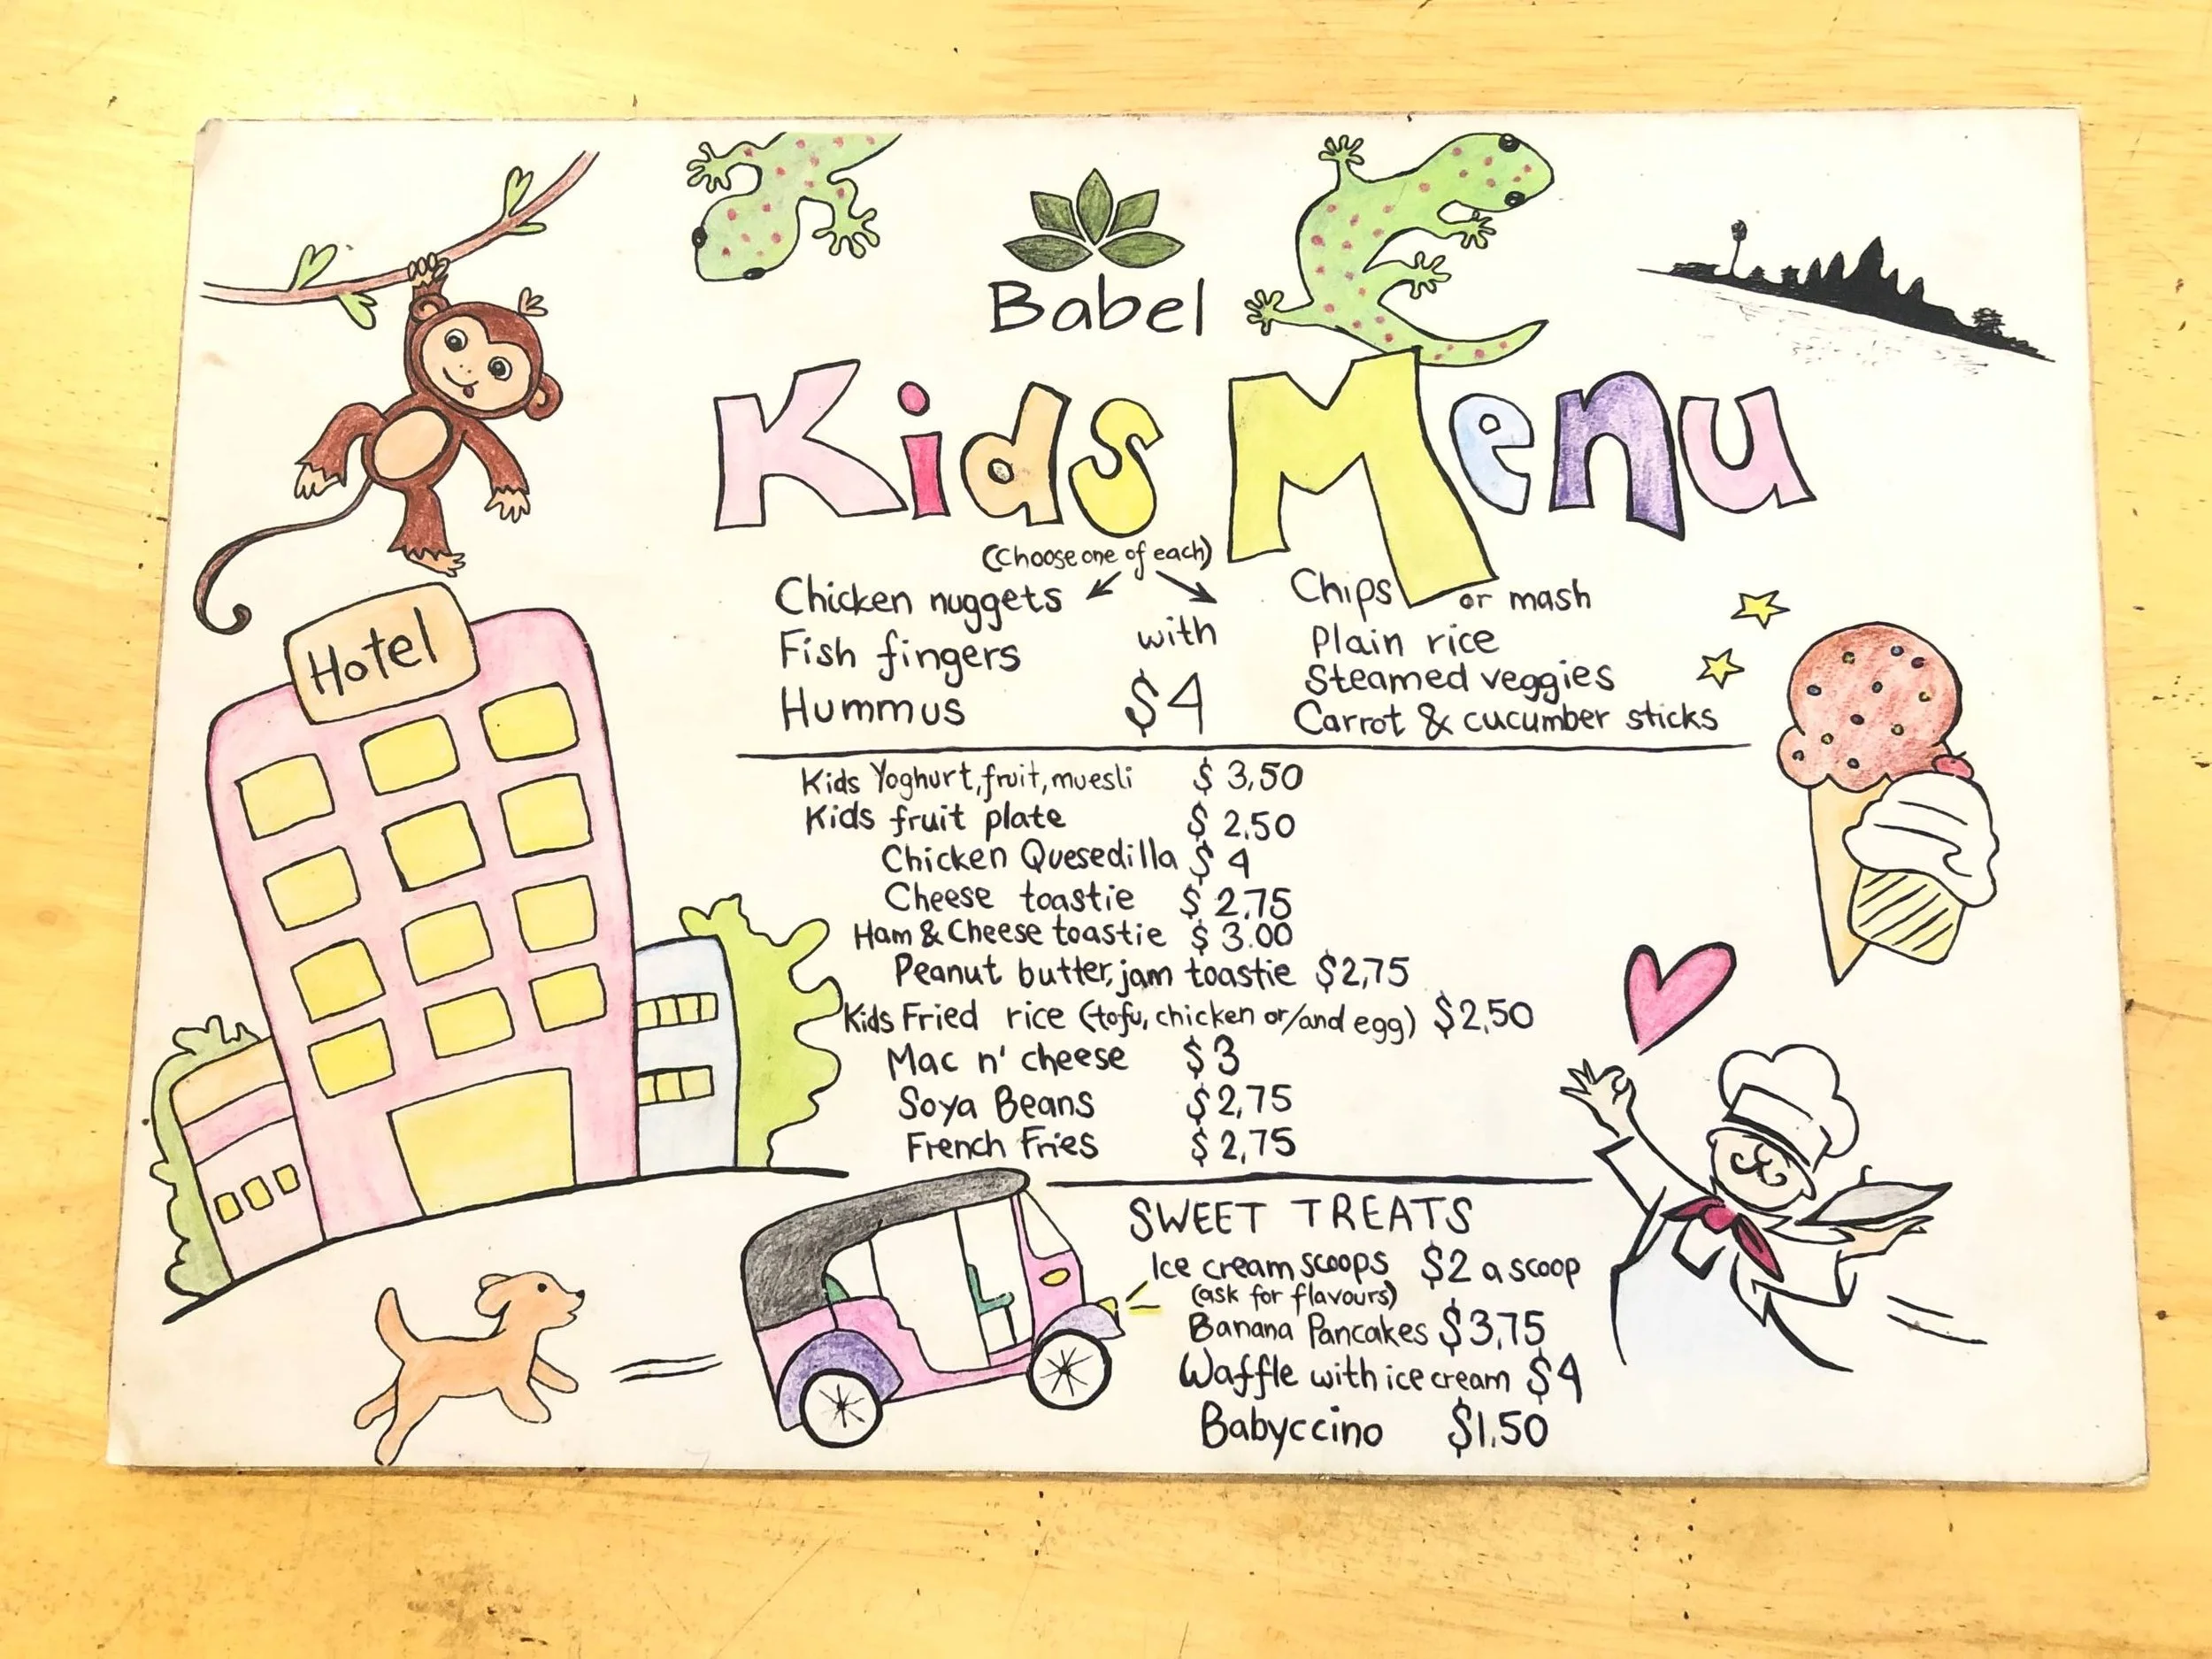 Babel
Kids Menu
(Choose one of each)
Chicken nuggets
Fish fingers
Hummus
with
$4
Chips or mash
Plain rice
Steamed veggies
Carrot & cucumber sticks
Hotel
Kids Yoghurt, fruit, muesli $3,50
Kids fruit plate $2.50
Chicken Quesedilla $4
Cheese toastie $2.75
Ham & Cheese toastie $3.00
Peanut butter, jam toastie $2,75
Kids Fried rice (tofu, chicken or/and egg) $2,50
Mac n' cheese $3
Soya Beans $2,75
French Fries $2,75
SWEET TREATS
Ice cream scoops $2 a scoop
(ask for flavours)
Banana Pancakes $3,75
Waffle with ice cream $4
Babyccino $1.50